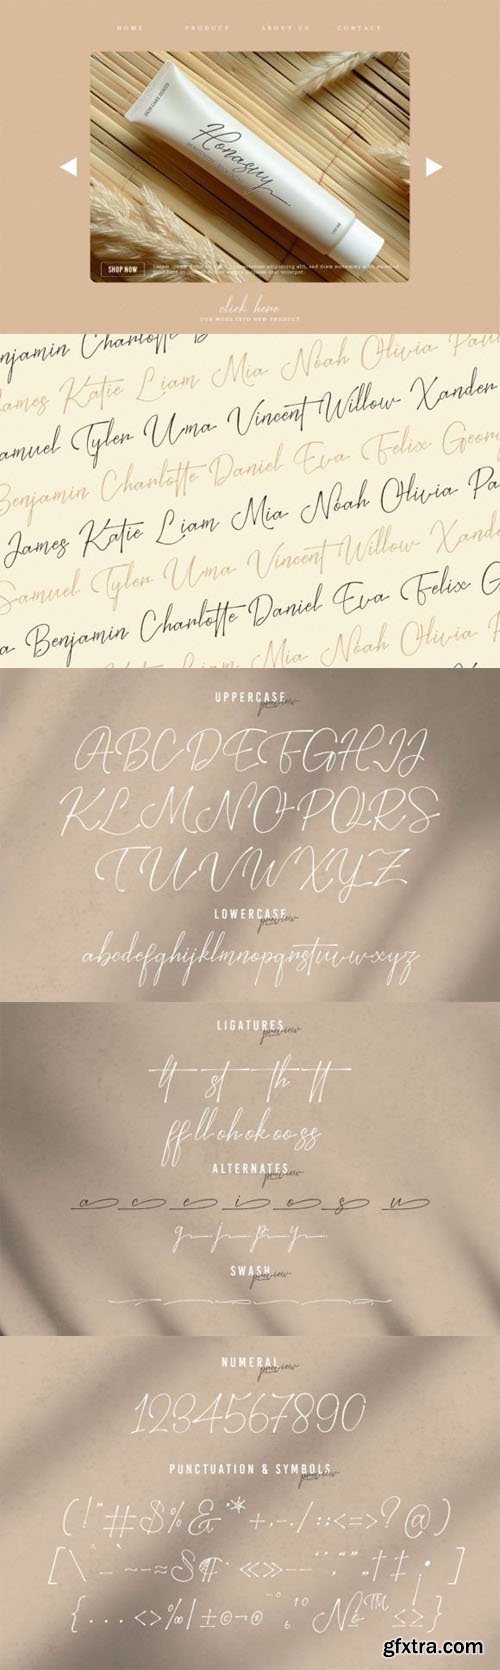 HOME PRODUCT ABOUT US CONTACT
Honasuy
SHOP NOW
click here
FOR MORE INFO NEW PRODUCT
Benjamin Charlotte
James Katie Liam Mia Noah Olivia
Samuel Tyler Uma Vincent Willow Xander
Benjamin Charlotte Daniel Eva Felix
James Katie Liam Mia Noah Olivia
Samuel Tyler Uma Vincent Willow
Benjamin Charlotte Daniel Eva Felix
Liam Mia Noah Olivia
UPPERCASE
preview
ABCDEFGHIJ
KLMNOPQRS
TUVWXYZ
LOWERCASE
preview
abcdefghijklmnopqrstuvwxyz
LIGATURES
preview
lt st th tt
ff ll oh ok oo ss
ALTERNATES
preview
a c e i o s u
g j p y
SWASH
preview
NUMERAL
preview
1234567890
PUNCTUATION & SYMBOLS
preview
(!"#$%&'*+,-./:;<=>?@)
gfxtra.com